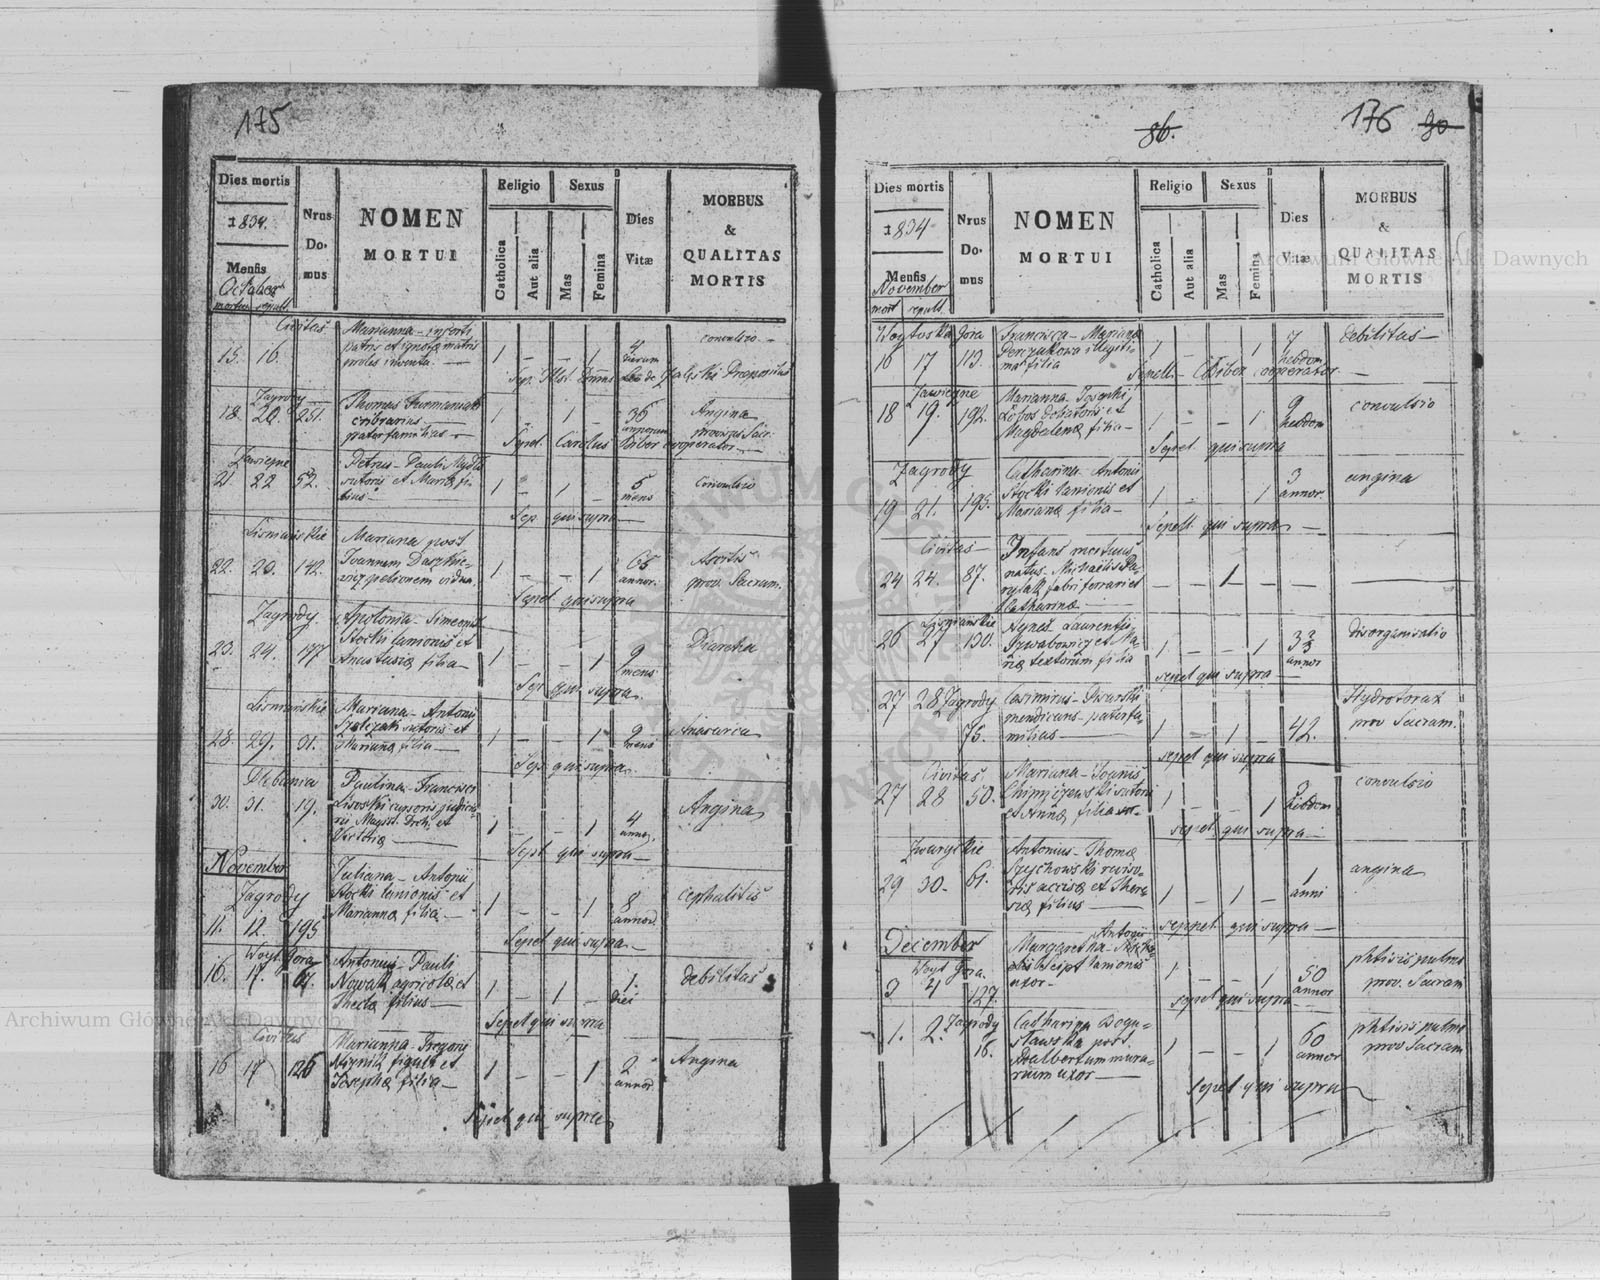 175
Dies mortis
1834.
Mensis
October
mortuus sepult.
Nrus
Do-
mus
NOMEN
MORTUI
Religio
Catholica
Aut alia
Sexus
Mas
Femina
Dies
Vitæ
MORBUS
&
QUALITAS
MORTIS
Civitas
15. 16.
Marianna - incerti
patris et ignotæ matris
proles inventa.
1 — — 1
4
dierum
convulsio.
Zagrody
18. 20. 251.
Thomas
cribrarius
pater familias
1 — 1 —
36
annorum
Angina
provisus Sacr.
Sepel. Carolus Biber cooperator
Zawięzne
21 22 52.
Petrus - Pauli
sutoris et Mariæ fi-
lius
1 — 1 —
5
mens
Convulsio
Sep. qui supra
22. 142.
Mariana post
Joannem
vidua.
1 — — 1
65
annor.
Ascitis
prov. Sacram.
Sepel qui supra
Zagrody.
23. 24. 177
Apolonia - Simeonis
Stocki lanionis et
Anastasiæ filia
1 — — 1
9
mens
Diarrhea
Sep. qui supra.
28. 29. 31.
Mariana - Antonii
sutoris et
Marianæ filia
1 — — 1
9
mens
Anasarca
Sep. qui supra.
Plebania
30. 31. 19.
Paulina - Francisci
Lisoski cursoris judicia-
rii Magist. Droh. et
Victoriæ
1 — — 1
4
annor.
Angina
Sepel qui supra
November
Zagrody
11. 12. 195
Juliana - Antonii
Stocki lanionis et
Mariannæ filia
1 — — 1
8
annor.
Cephalitis
Sepel qui supra.
Woyt. Gora
16. 17. 64.
Antonius - Pauli
Nowak agricolæ et
Theclæ filius
1 — 1 —
1.
diei
debilitas
Sepel qui supra
Civitas
16 17 126
Marianna - Gregorii
figuli et
Josephæ filia
1 — — 1
2
annor.
Angina
Sepel qui supra
86.
176 30
Dies mortis
1834
Mensis
November
mort sepult.
Nrus
Do-
mus
NOMEN
MORTUI
Religio
Catholica
Aut alia
Sexus
Mas
Femina
Dies
Vitæ
MORBUS
&
QUALITAS
MORTIS
Woytoska Gora
16 17 113.
Francisca - Marianæ
illegiti-
ma filia
1 — — 1
7
hebdom.
debilitas
Sepeli. C. Biber cooperator
Zawięzne
18 19. 192.
Marianna - Josephi
Łobos doliatoris et
Magdalenæ filia
1 — — 1
9
hebdom
convulsio
Sepel. qui supra
Zagrody
19 21. 195.
Catharina - Antonii
Stocki lanionis et
Marianæ filia
1 — — 1
3
annor.
angina
Sepel. qui supra
Civitas
24 24. 87.
Infans mortuus
natus - Michaelis
fabri ferrari et
Catharinæ
— — 1 — — —
26 27 130.
Agnes - Laurentii
et Ma-
riæ textorum filia
1 — — 1
3
annor
disorganisatio
sepel qui supra
27 28 Zagrody
75.
Casimirus
mendicans - paterfa-
milias
1 — 1 —
42.
Hydrotorax
prov. Sacram.
sepel qui supra
Civitas
27 28 50.
Mariana - Joanis
sutoris
et Annæ filia
1 — — 1
hebdom
convulsio
sepel. qui supra
Zwaryckie
29 30. 61.
Antonius - Thomæ
Szychowski reviso-
ris accisæ et There-
siæ filius
1 — 1 —
1
anni
angina
seppel. qui supra
December
Woyt Gora.
3 4 127.
Margaretha - Antonii
lanionis
uxor
1 — — 1
50
annor
phtisis pulmo
prov. Sacram
sepel qui supra
Zagrody
1. 2. 16.
Catharina Bogu-
sławska post
Adalbertum mura-
rium uxor
1 — — 1
60
annor
phtisis pulmo
prov Sacram
sepel qui supra
Archiwum Główne Akt Dawnych
Archiwum Główne Akt Dawnych